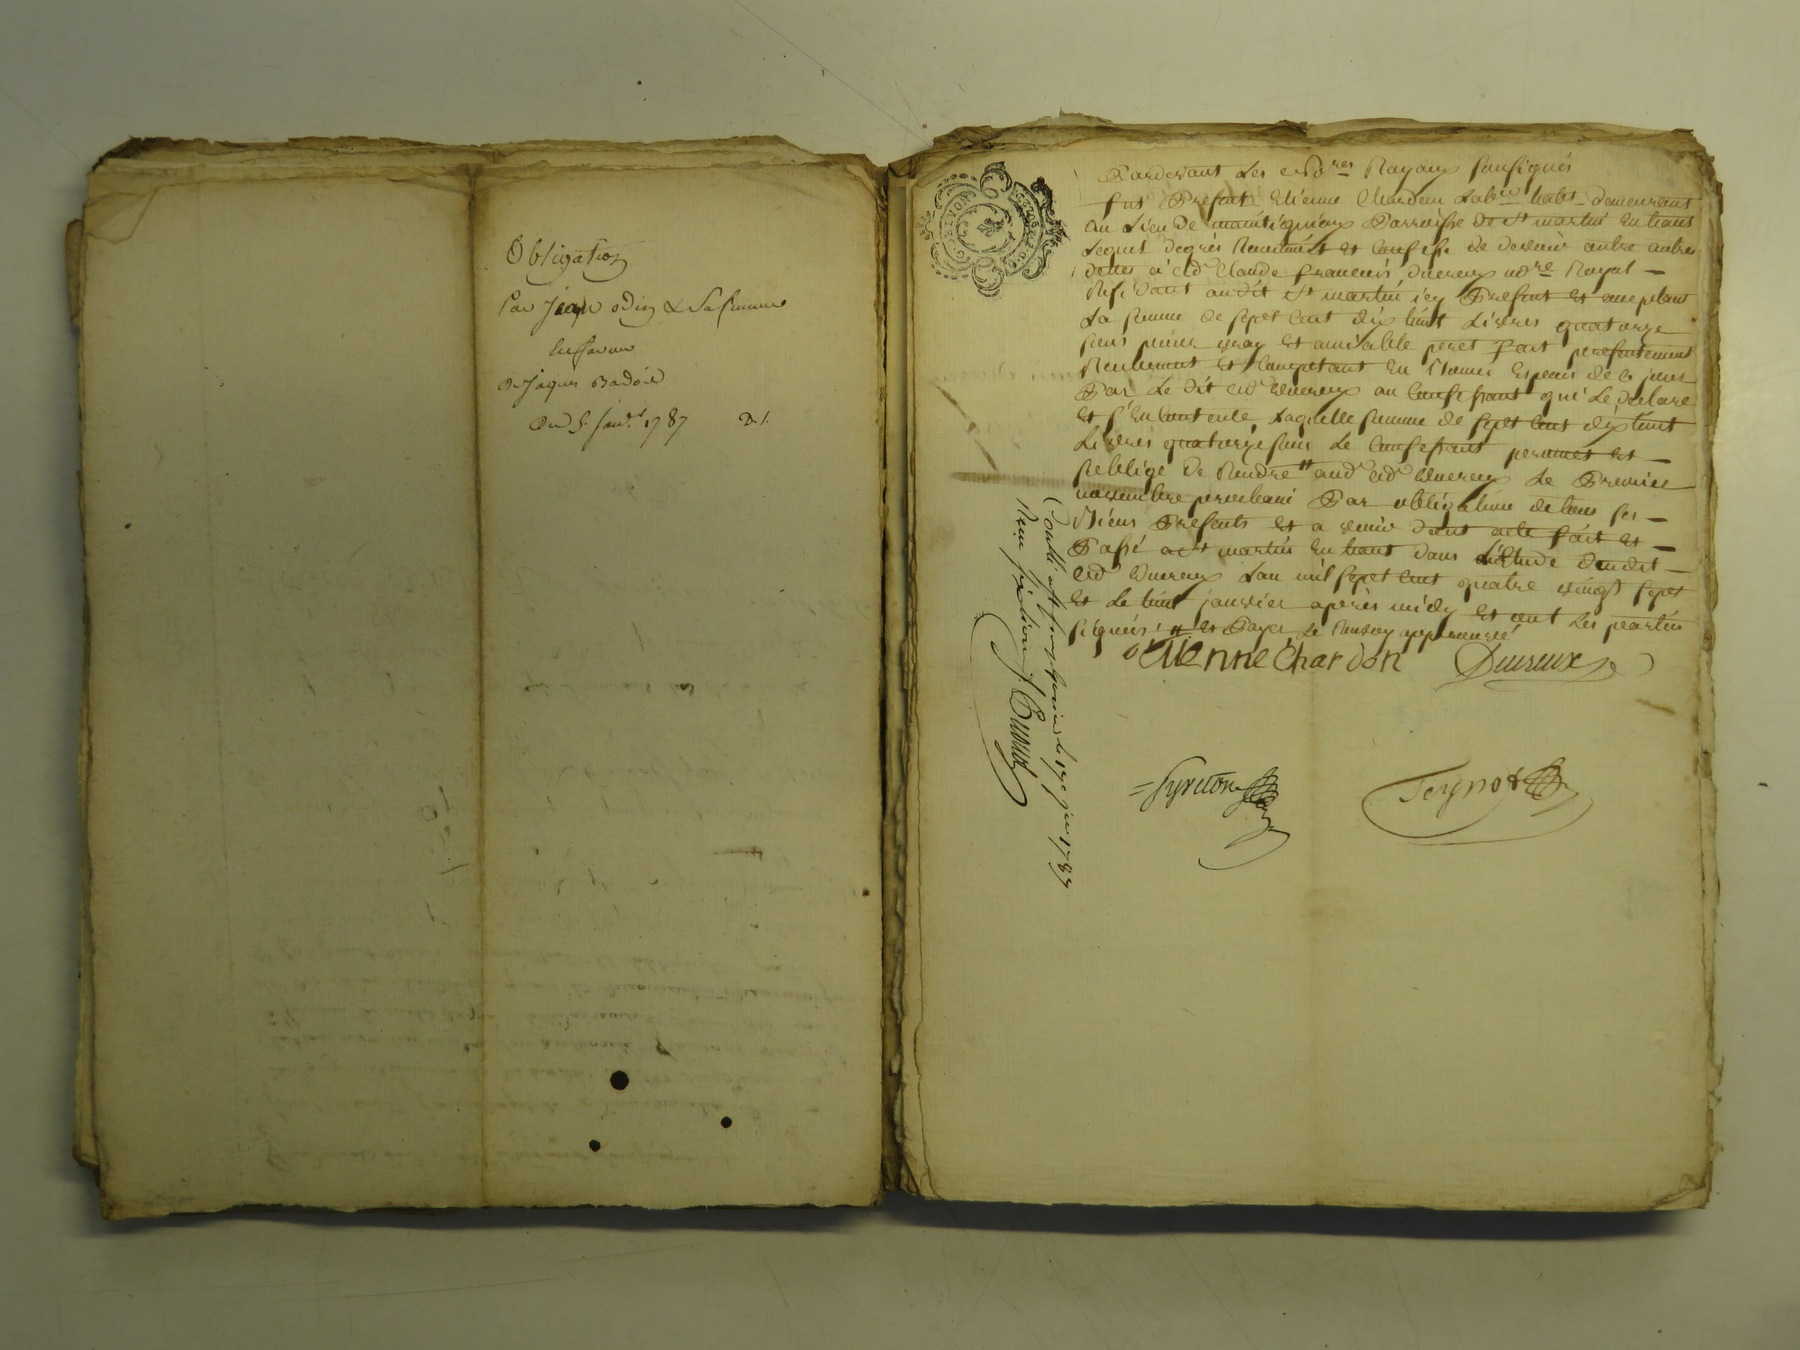 Obligation
Par Jean odin & Sa femme
En faveur
De Jaques Badoil
Du 5. janv.r 1787 D. 1.
Pardevant Les Nores Royaux Sousignés
fut Présent Etienne Chardon Lab.r habt Demeurant
au Lieu de Parroisse de St martin En haut
Lequel degrés Reconnoit et Confesse de devoir entre autre
dettes à Me Claude françois Duvreux nore Royal
Résidant audit St martin icy Présent et acceptant
La somme de sept Cent dix huit Livres quatorze
sous pour vray et amiable pret fait presentement
Réelement et Comptant En Espéces de ce jour
Par Le dit Me Duvreux au Confessant qui Le declare
et s'En Contente Laquelle somme de sept Cent dix huit
Livres quatorze sous Le Confessant promet et
s'oblige de Rendre # aud. Me Duvreux Le Premier
novembre prochain Par obligation de tous ses
Biens Présents et a venir dont acte fait et
Passé a St martin En haut dans L'Etude Dudit
Me Duvreux Lan mil sept Cent quatre vingt sept
et Le huit janvier après midy et ont Les parties
signées; # et Payer Le Renvoy approuvé
Etienne Chardon Duvreux
Syreton Teynot
17 1787